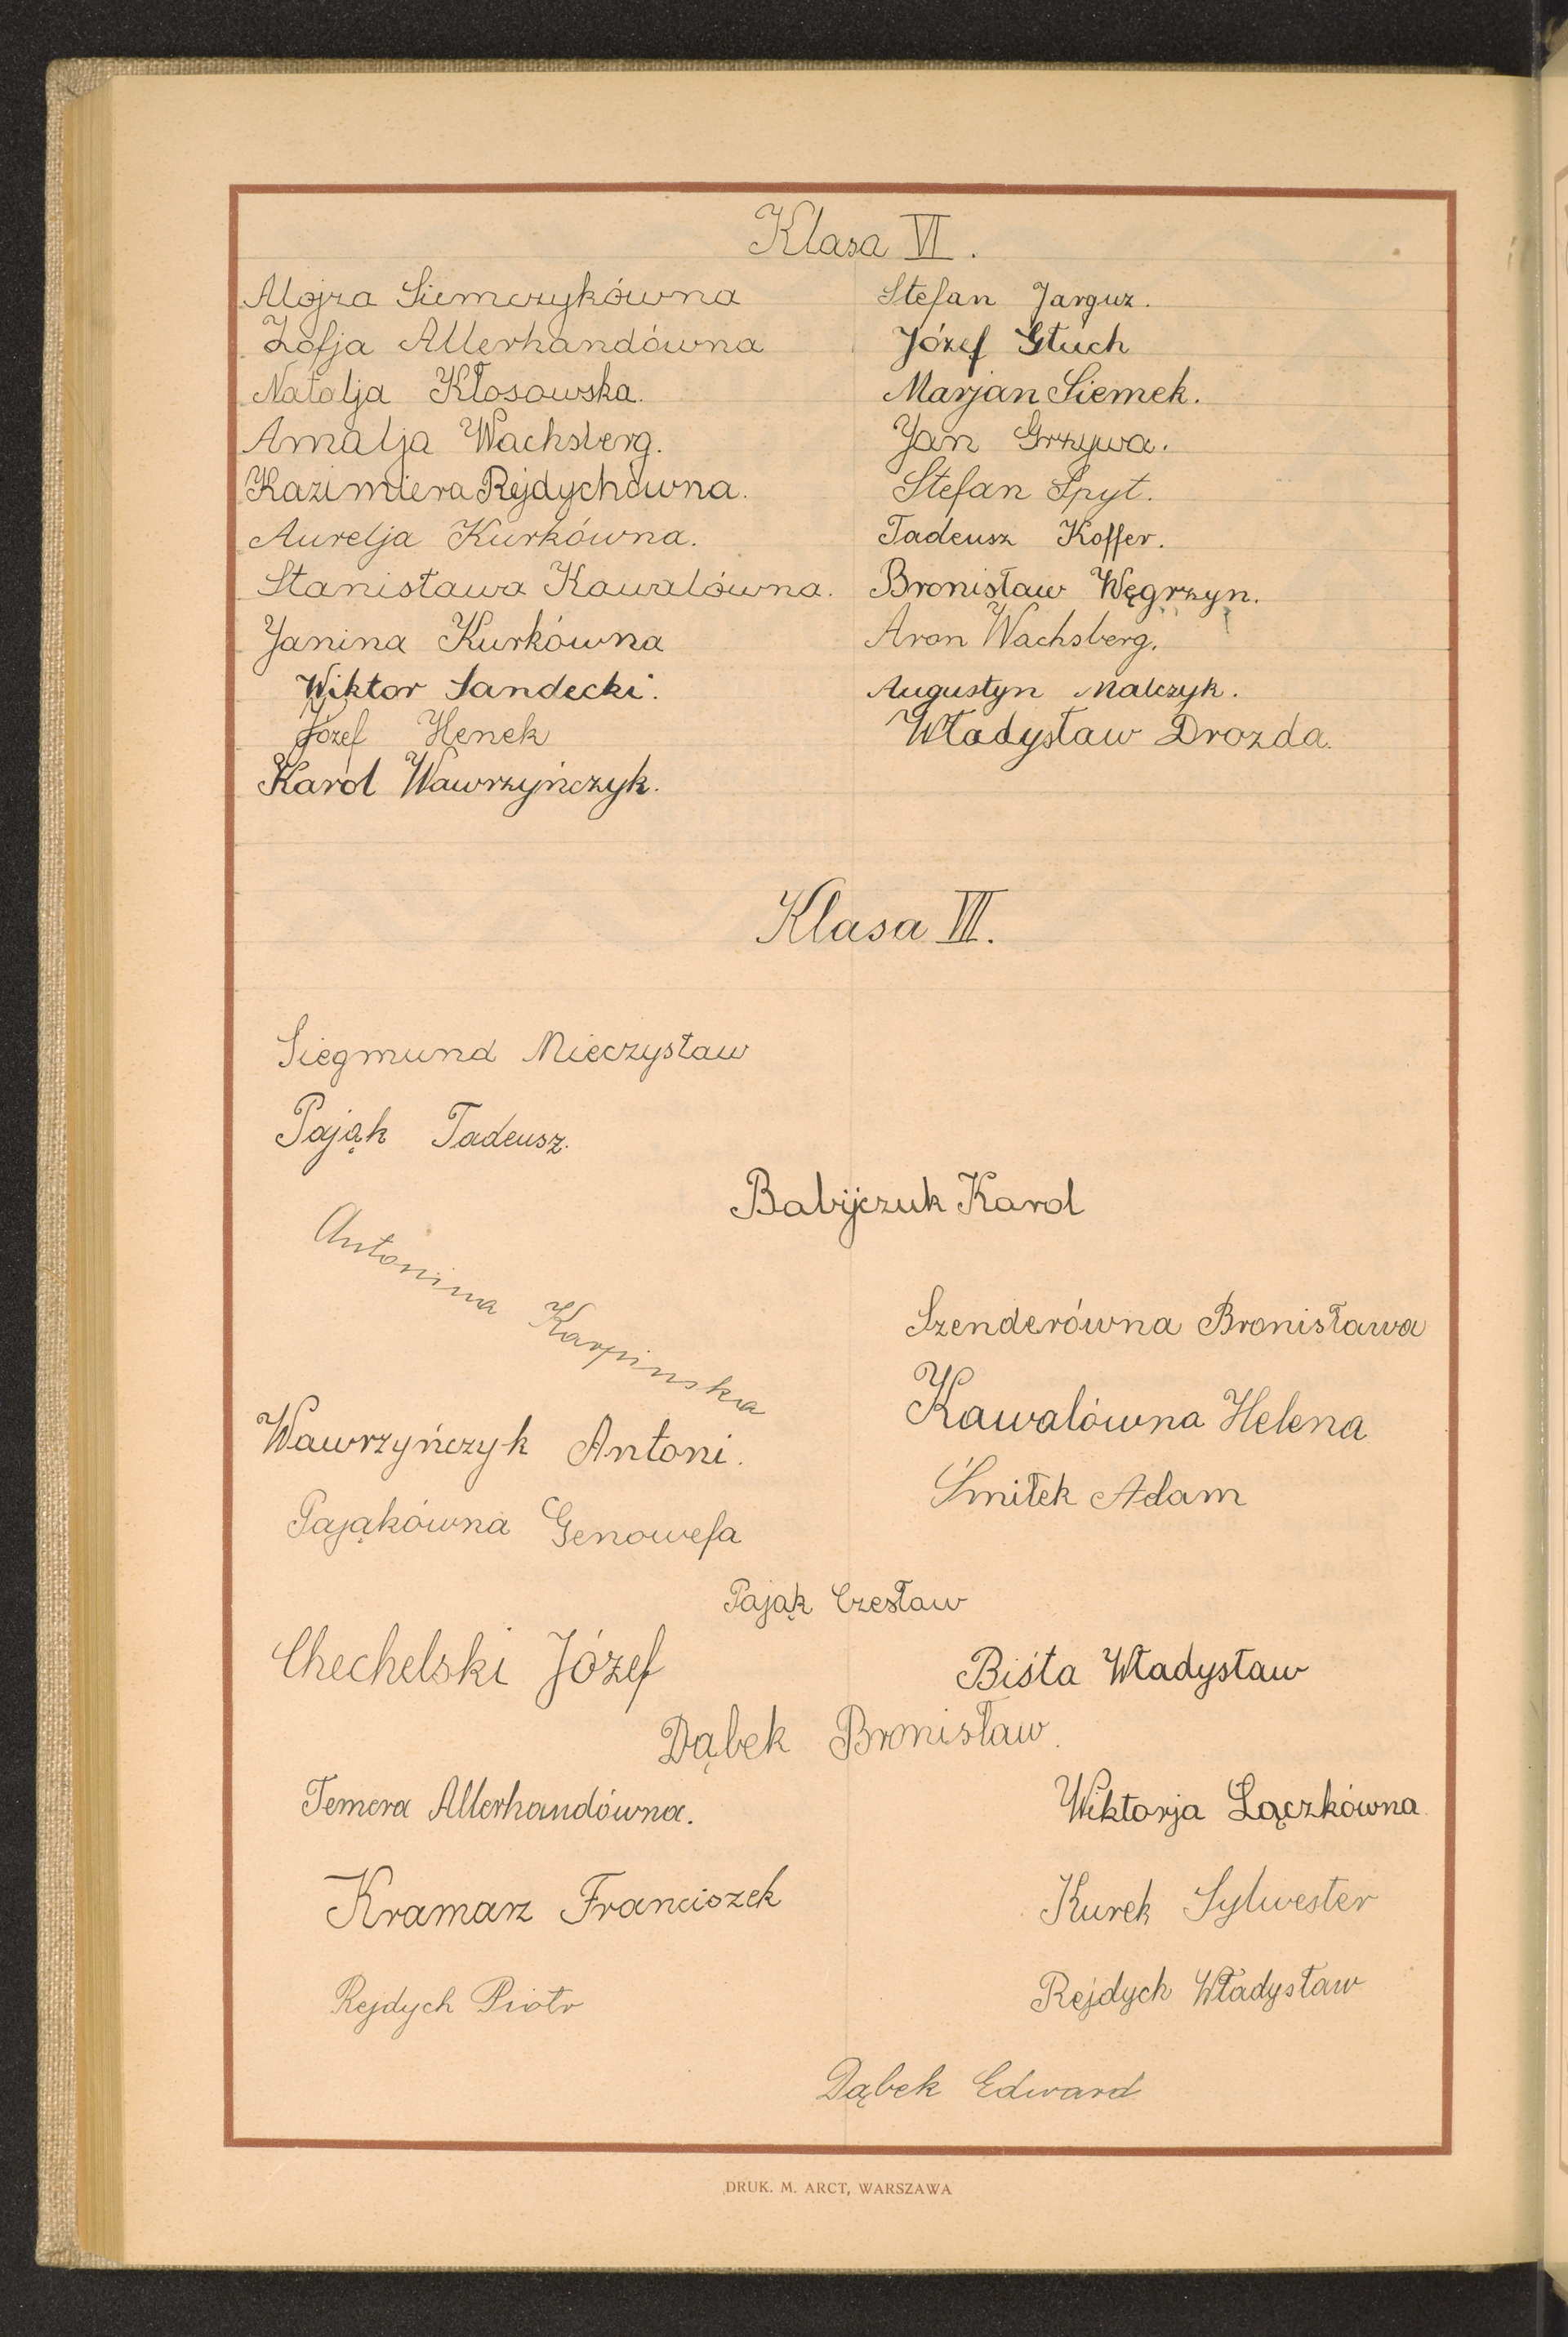 Klasa VI.
Alojza Siemczykówna
Zofja Allerhandówna
Natalja Kłosowska.
Amalja Wachsberg.
Kazimiera Rejdychówna.
Aurelja Kurkówna.
Stanisława Kawalówna.
Janina Kurkówna
Wiktor Sandecki.
Józef Henek
Karol Wawrzyńczyk.
Stefan Jarguz.
Józef Głuch
Marjan Siemek.
Jan Grzywa.
Stefan Spyt.
Tadeusz Koffer.
Bronisław Węgrzyn.
Aron Wachsberg.
Augustyn Malczyk.
Władysław Drozda.
Klasa VII.
Siegmund Mieczysław
Pająk Tadeusz.
Babijczuk Karol
Antonina Karpinska
Szenderówna Bronisława
Kawalówna Helena
Wawrzyńczyk Antoni.
Śmiłek Adam
Pająkówna Genowefa
Pająk Czesław
Chechelski Józef
Biśta Władysław
Dąbek Bronisław.
Temera Allerhandówna.
Wiktorja Lączkówna
Kramarz Franciszek
Kurek Sylwester
Rejdych Piotr
Rejdych Władysław
Dąbek Edward
DRUK. M. ARCT, WARSZAWA